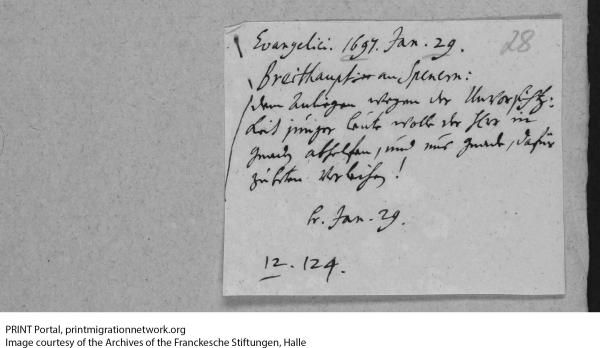 Evangelici. 1697. Jan. 29.
28
Breithaupt an Spenern:
dem Anligen wegen der Unvorsichtig-
keit junger Leute wolle der Herr in
gnaden abhelfen, und uns gnade, dafür
zu beten verleihen!
br. Jan. 29.
12. 124.
PRINT Portal, printmigrationnetwork.org
Image courtesy of the Archives of the Franckesche Stiftungen, Halle